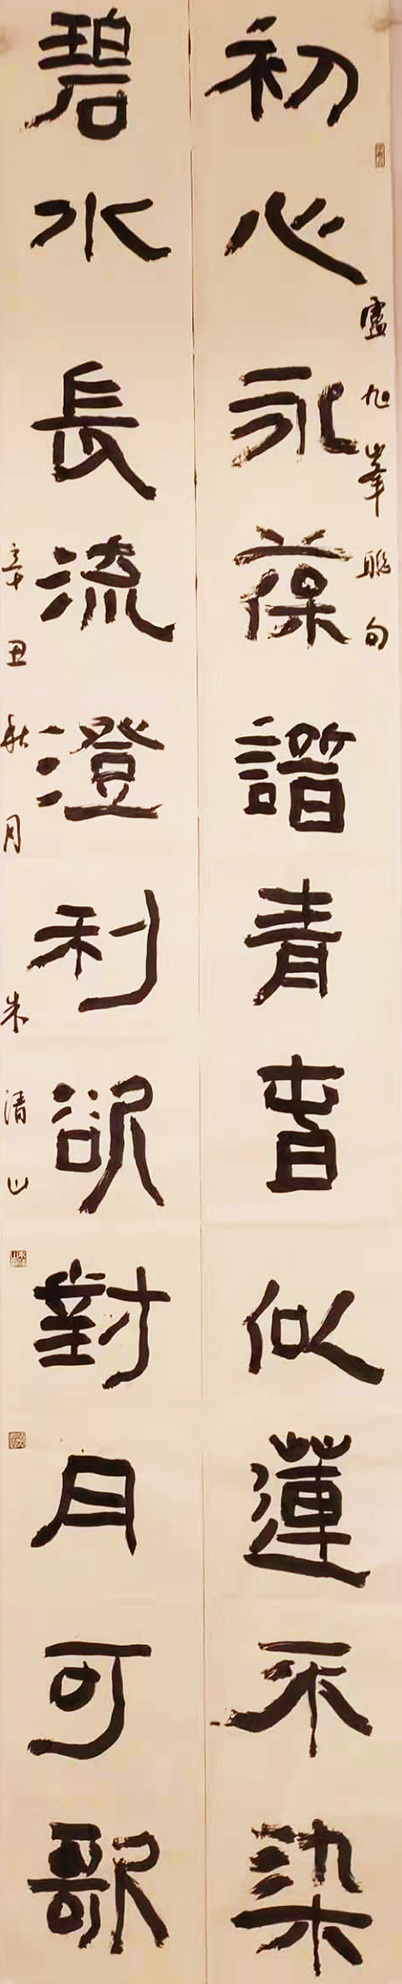 盧旭峯聯句
初心永葆譜青旾似蓮不染
碧水長流澄利欲對月可歌
辛丑秋月 朱清山